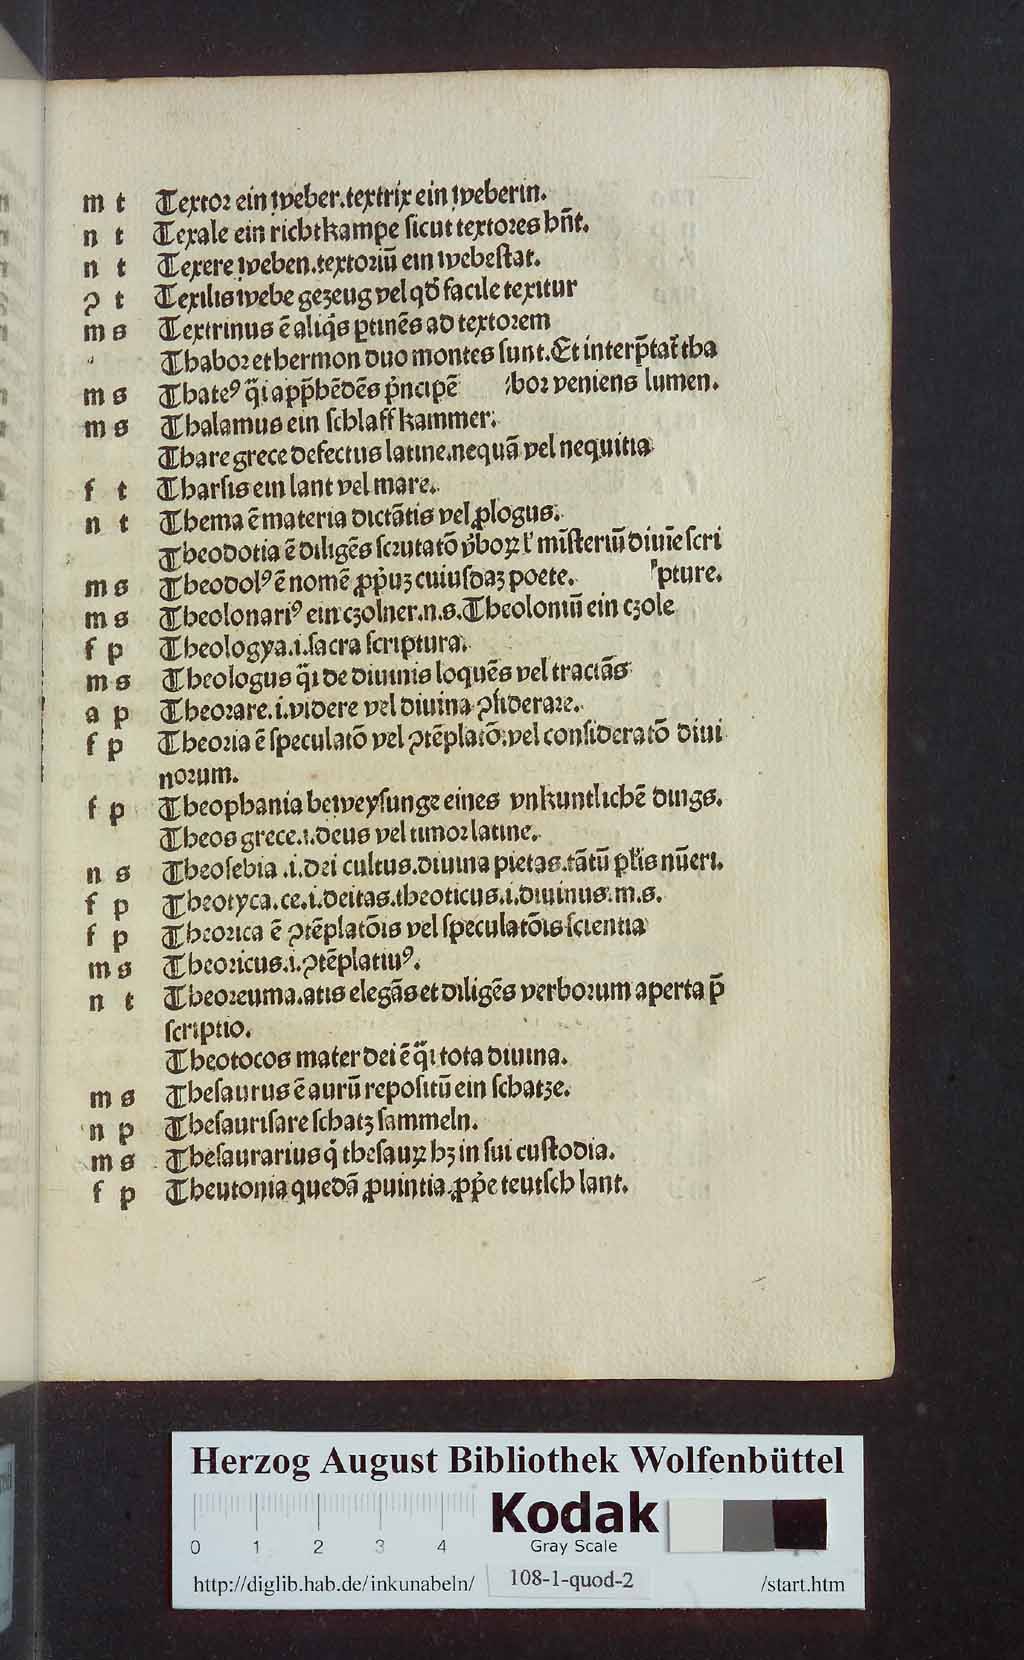 m t Textor ein weber.textrix ein weberin.
n t Texale ein richtkampe sicut textores hn̄t.
n t Texere weben.textoriū ein webestat.
ꝯ t Texilis webe gezeug vel qd̕ facile texitur
m s Textrinus ē aliq̄s ꝑtinēs ad textorem
Thabor et hermon duo montes sunt.Et interp̄tat᷑ tha
m s Thateꝰ q̄si app̄hēdēs p̄ncipē bor veniens lumen.
m s Thalamus ein schlaff kammer.
Thare grece defectus latine.nequā vel nequitia
f t Tharsis ein lant vel mare.
n t Thema ē materia dictātis vel ꝓlogus.
Theodotia ē diligēs scrutatō v̄boꝝ l̕ mīsteriū diuīe scri
m s Theodolꝰ ē nomē ꝓp̄uꝫ cuiusdaꝫ poete. pture.
m s Theolonariꝰ ein czolner.n.s.Theoloniū ein czole
f p Theologya.i.sacra scriptura.
m s Theologus q̄si de diuinis loquēs vel tractās
a p Theorare.i.videre vel diuina ꝯsiderare.
f p Theoria ē speculatō vel ꝯtēplatō.vel consideratō diui
norum.
f p Theophania beweysunge eines vnkuntlichē dings.
Theos grece.i.deus vel timor latine.
n s Theosebia .i.dei cultus.diuina pietas.tātū pl̄is nūeri.
f p Theotyca.ce.i.deitas.theoticus.i.diuinus.m.s.
f p Theorica ē ꝯtēplatōis vel speculatōis scientia
m s Theoricus.i.ꝯtēplatiuꝰ.
n t Theoreuma.atis elegās et diligēs verborum aperta p̄
scriptio.
Theotocos mater dei ē q̄si tota diuina.
m s Thesaurus ē aurū repositū ein schatze.
n p Thesaurisare schatz sammeln.
m s Thesaurarius q̄ thesauꝝ hꝫ in sui custodia.
f p Theutonia quedā ꝓuintia.ꝓp̄e teutsch lant.
Herzog August Bibliothek Wolfenbüttel
0 1 2 3 4
Kodak
Gray Scale
http://diglib.hab.de/inkunabeln/ 108-1-quod-2 /start.htm